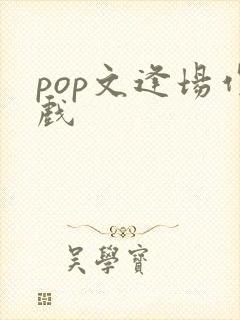 pop文逢場作
戲
吳學寶